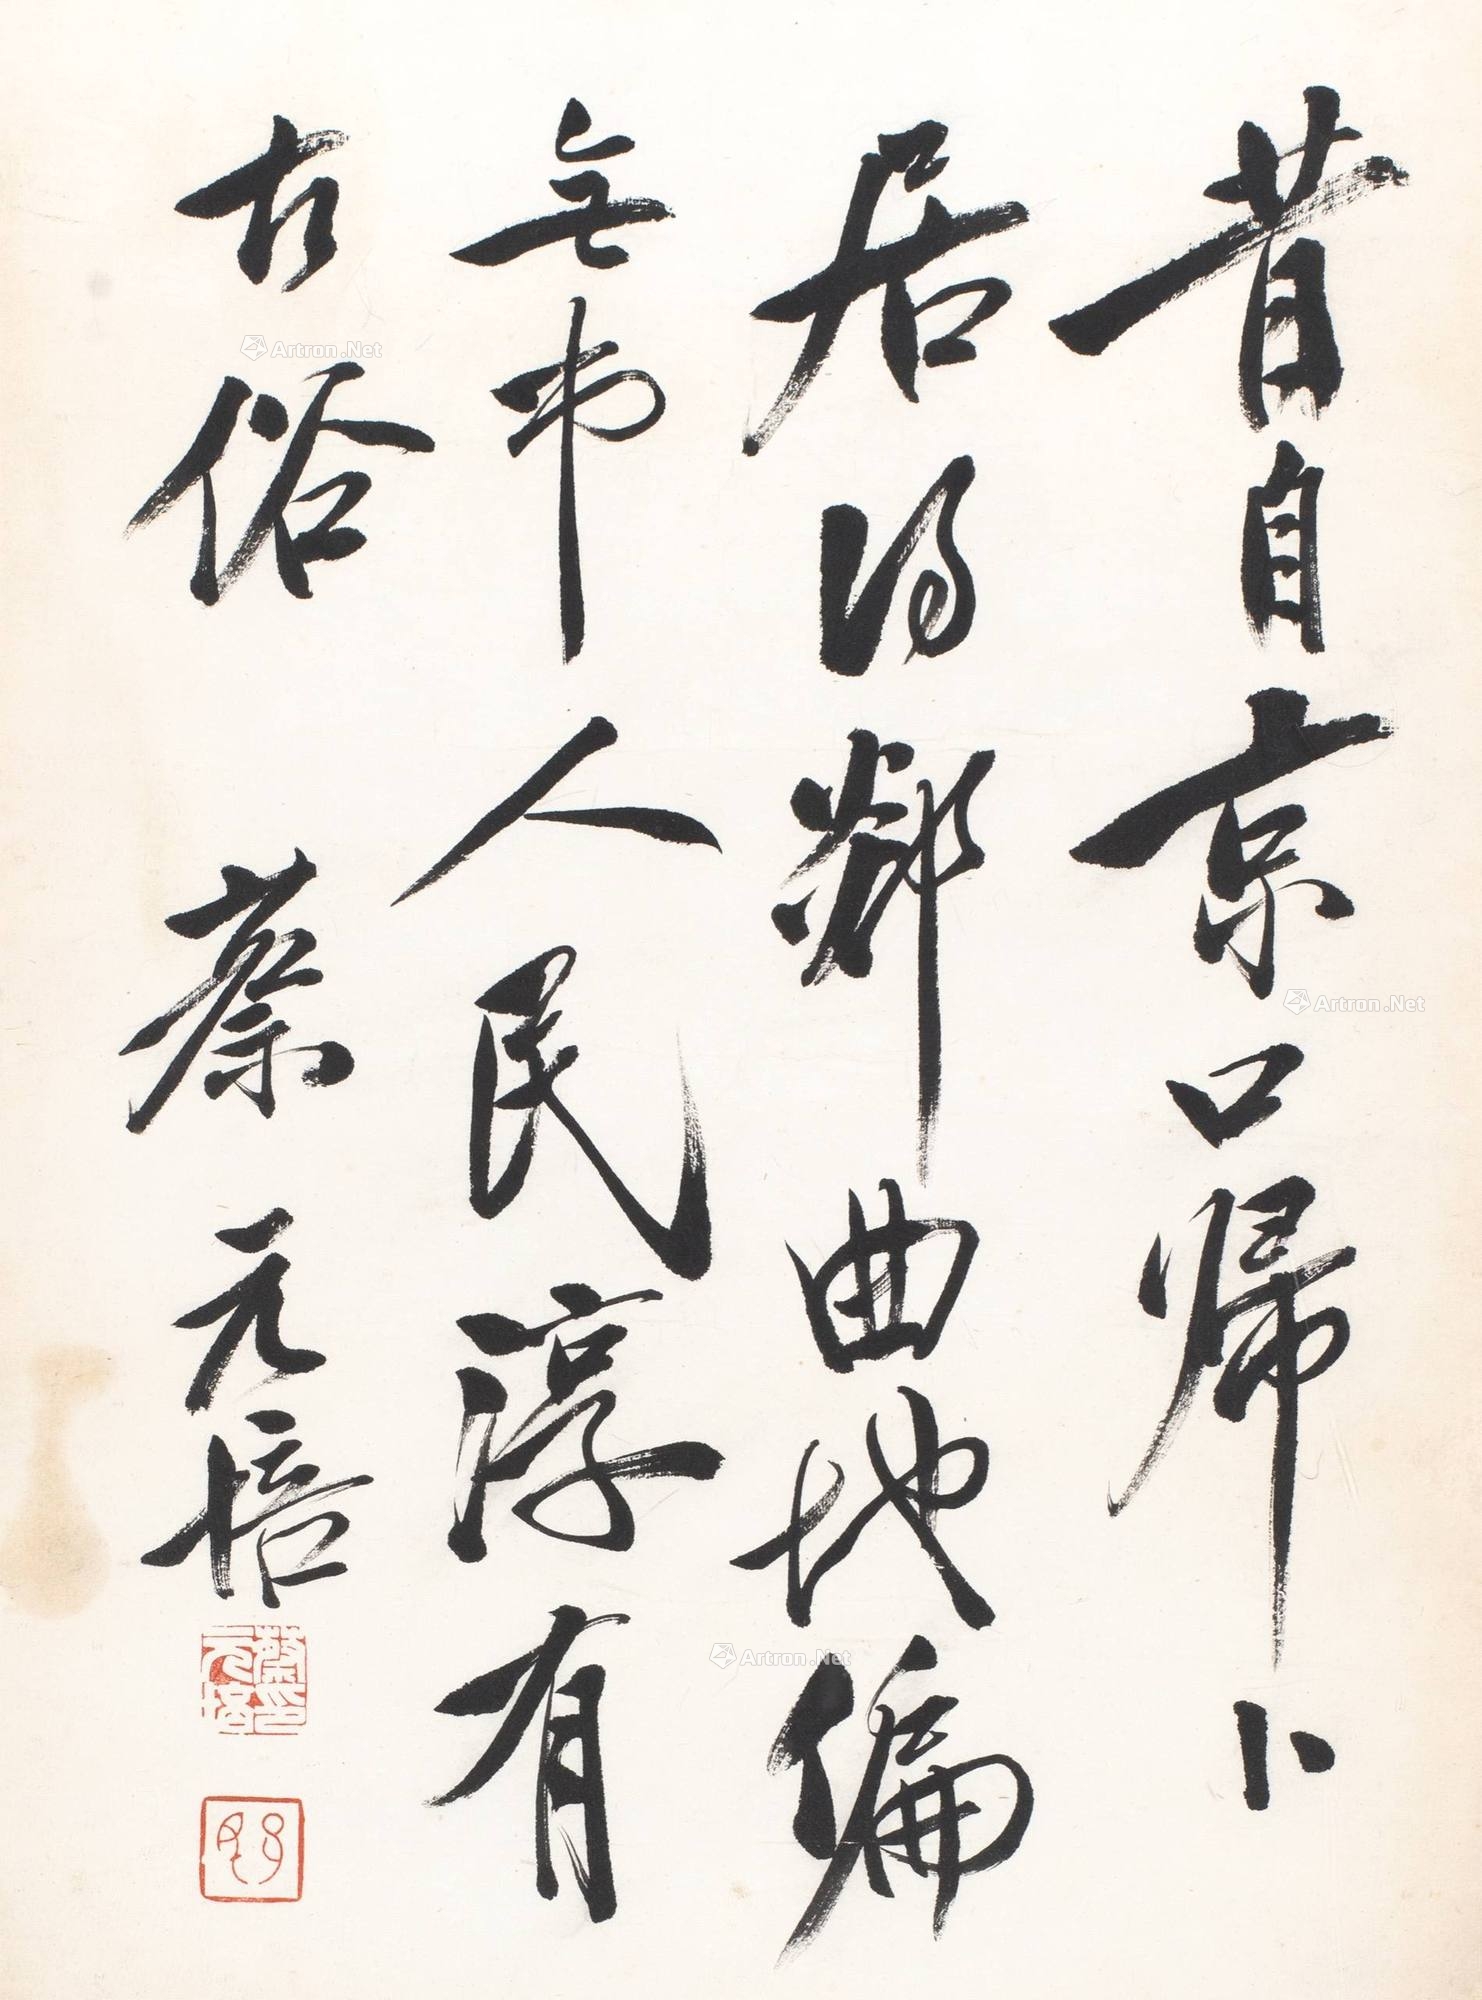 昔自京口帰卜
居得鄰曲地偏
無市人民淳有
古俗 蔡元培
蔡元培印
Artron.Net
Artron.Net
Artron.Net